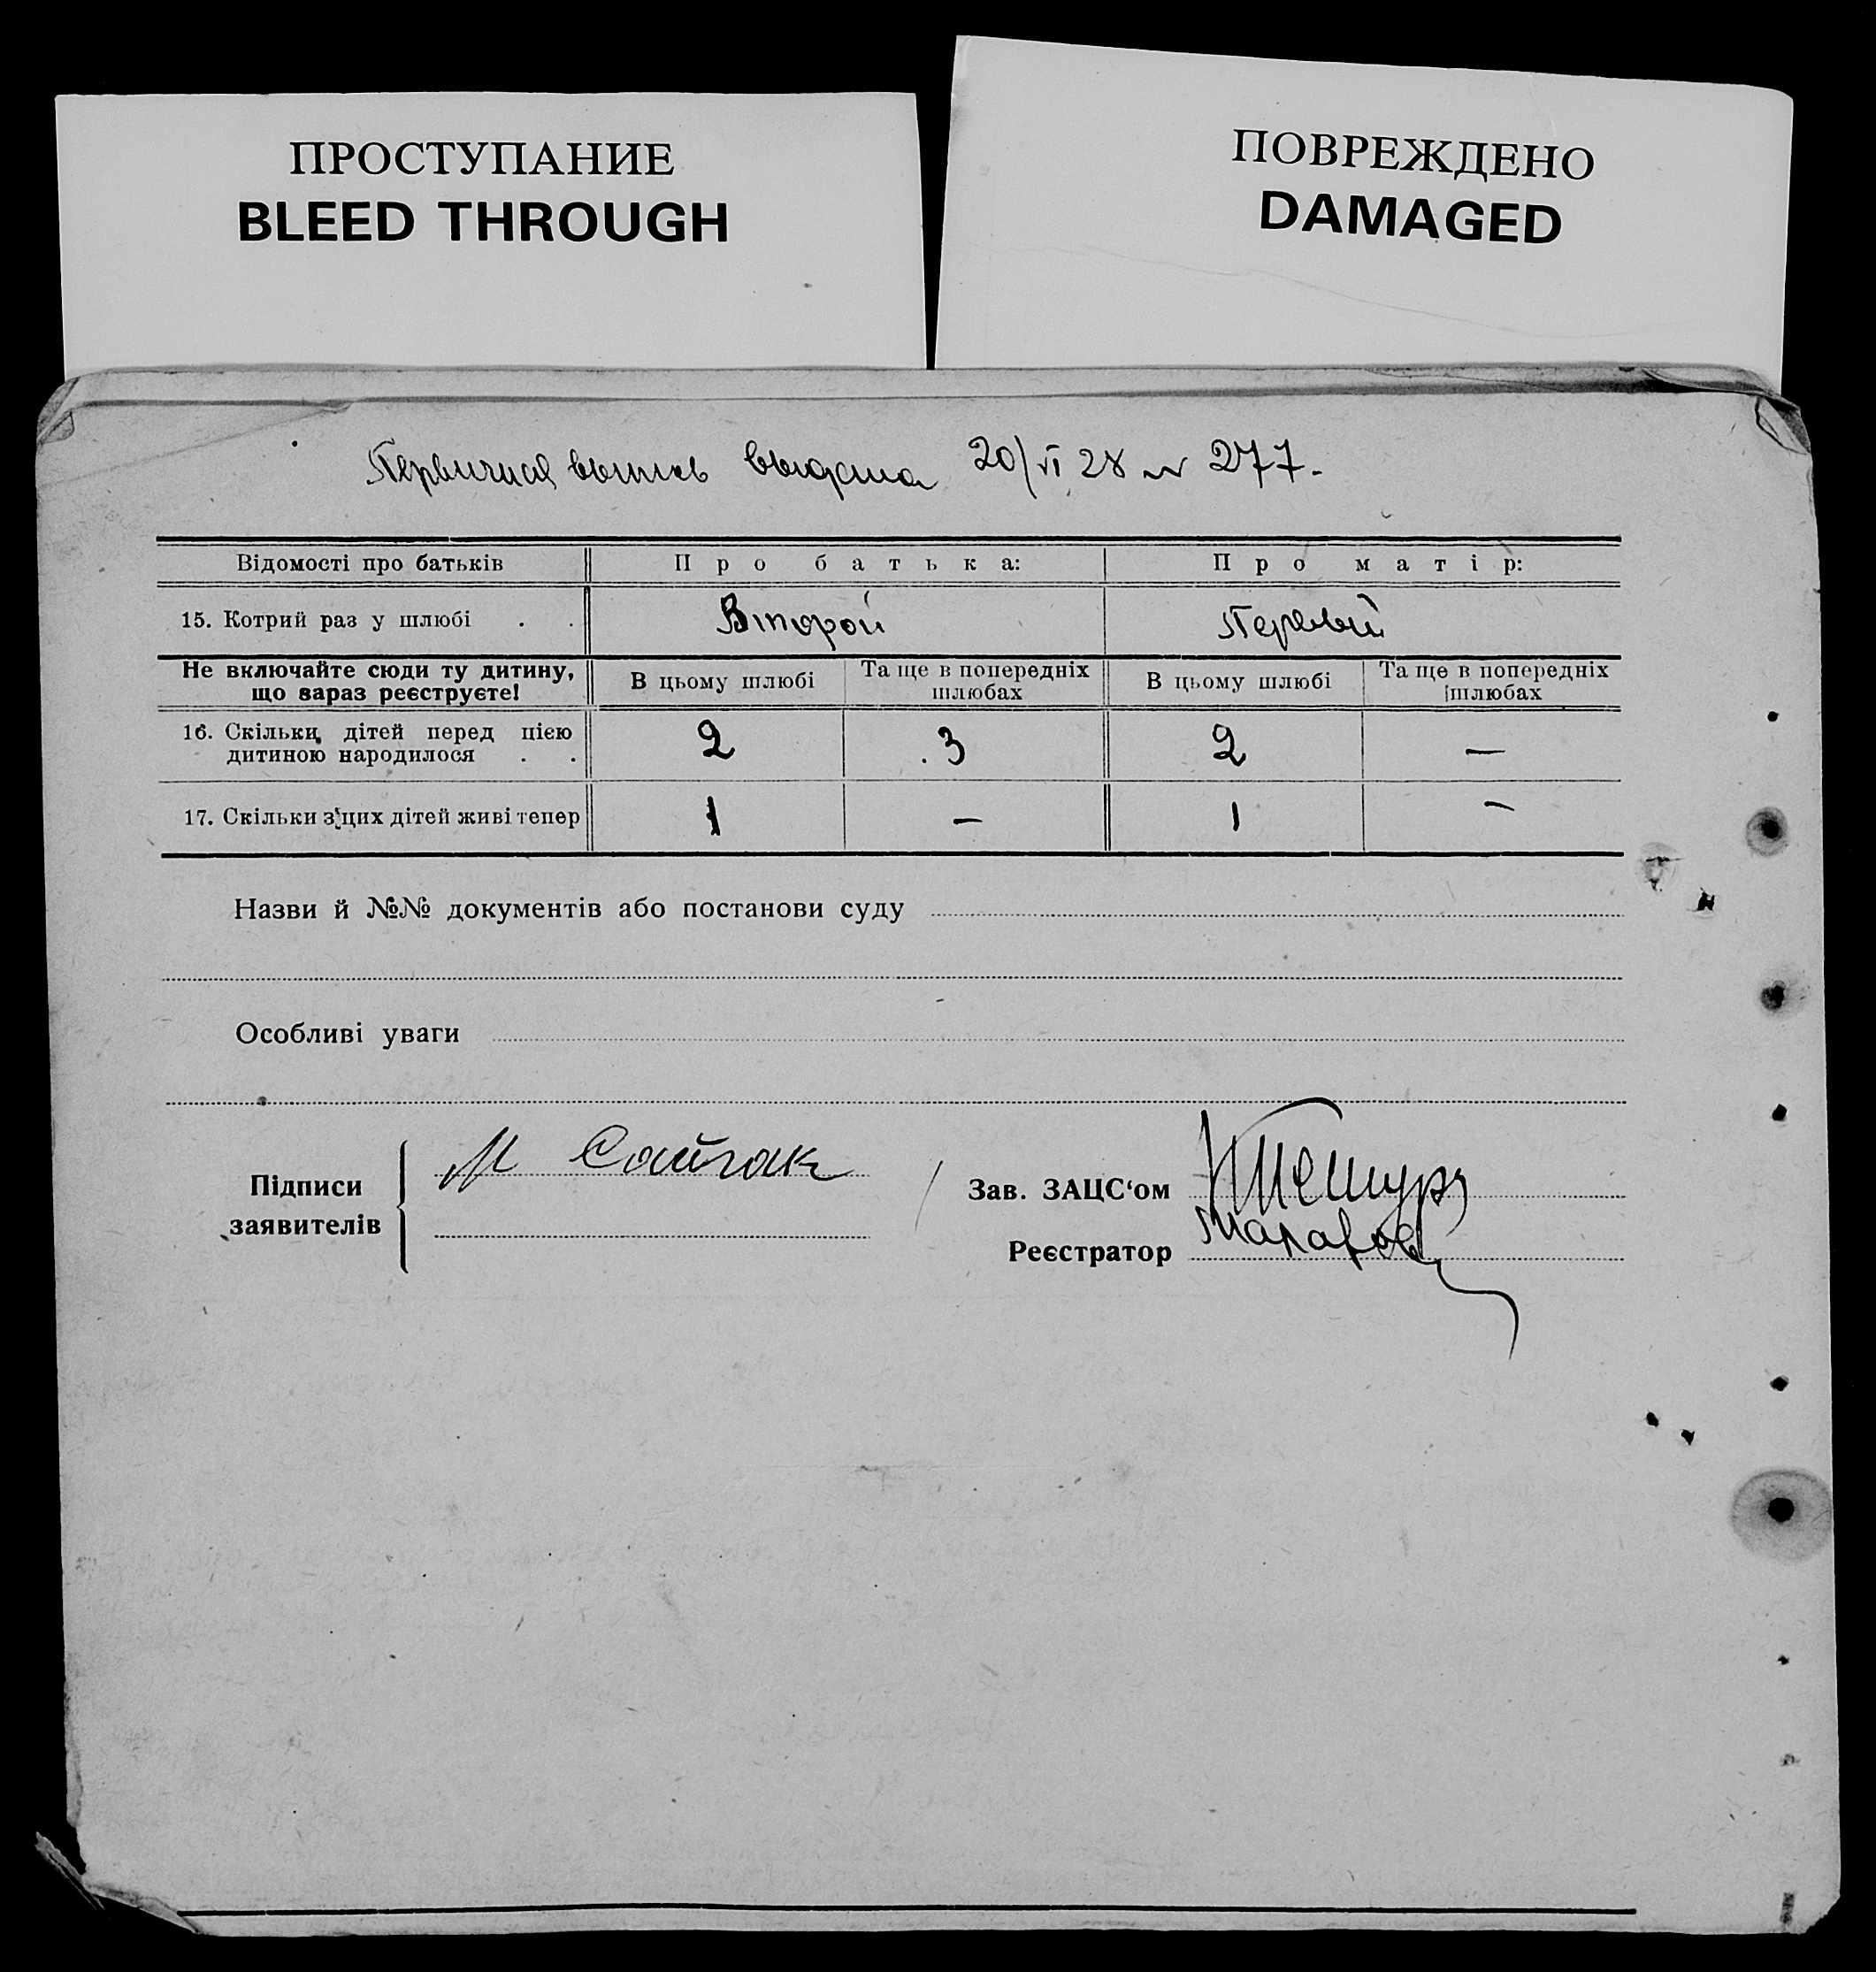 ПРОСТУПАНИЕ
BLEED THROUGH
ПОВРЕЖДЕНО
DAMAGED
Первичная выпись выдана 20/VI 28 № 277.
Відомості про батьків Про батька: Про матір:
15. Котрий раз у шлюбі . . Второй Первый
Не включайте сюди ту дитину, що зараз реєструєте! В цьому шлюбі Та ще в попередніх шлюбах В цьому шлюбі Та ще в попередніх шлюбах
16. Скільки дітей перед цією дитиною народилося . . 2 3 2 —
17. Скільки з цих дітей живі тепер 1 — 1 —
Назви й №№ документів або постанови суду
Особливі уваги
Підписи заявителів М Сайгак
Зав. ЗАЦС‘ом
Реєстратор